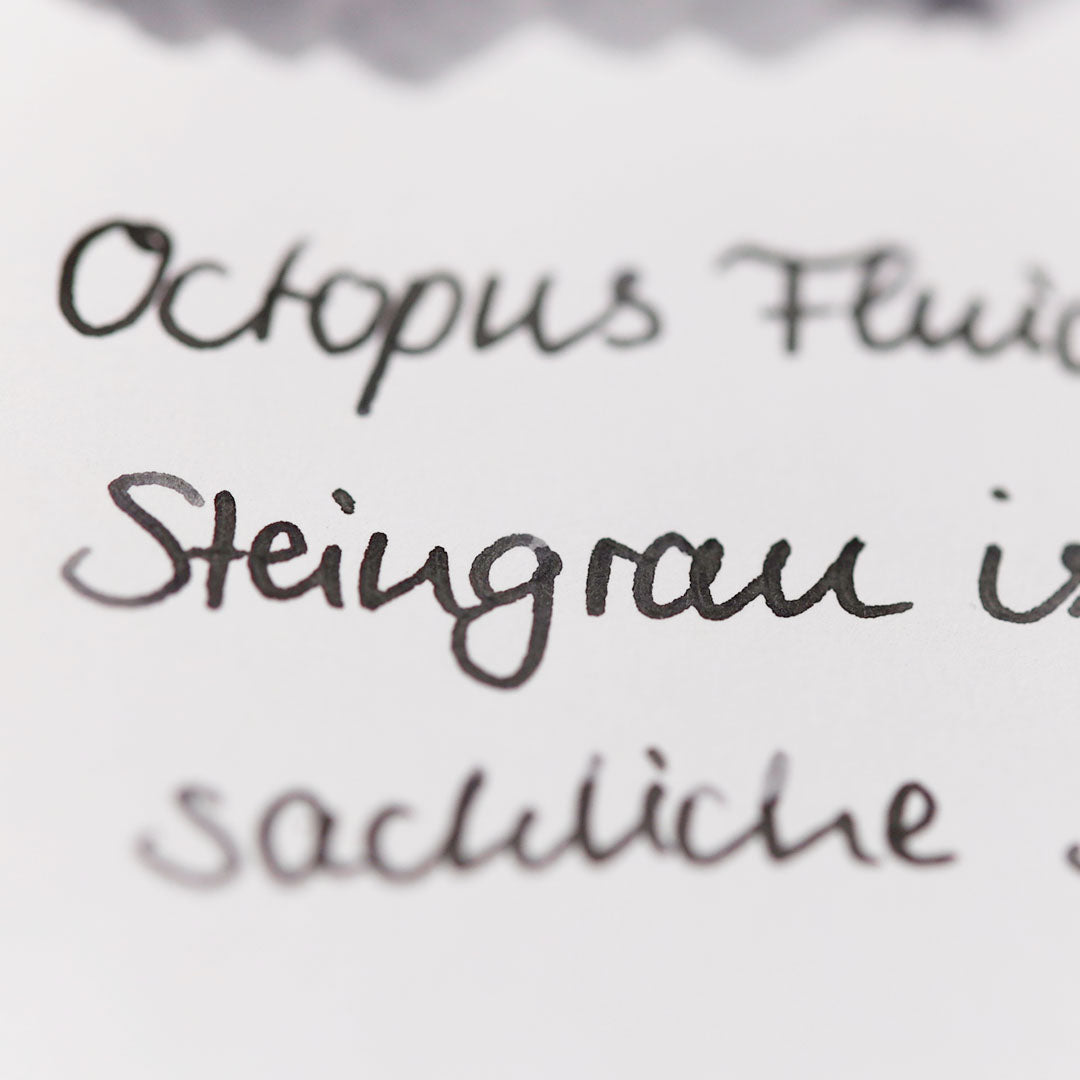 Octopus Fluid
Steingrau is
sachliche